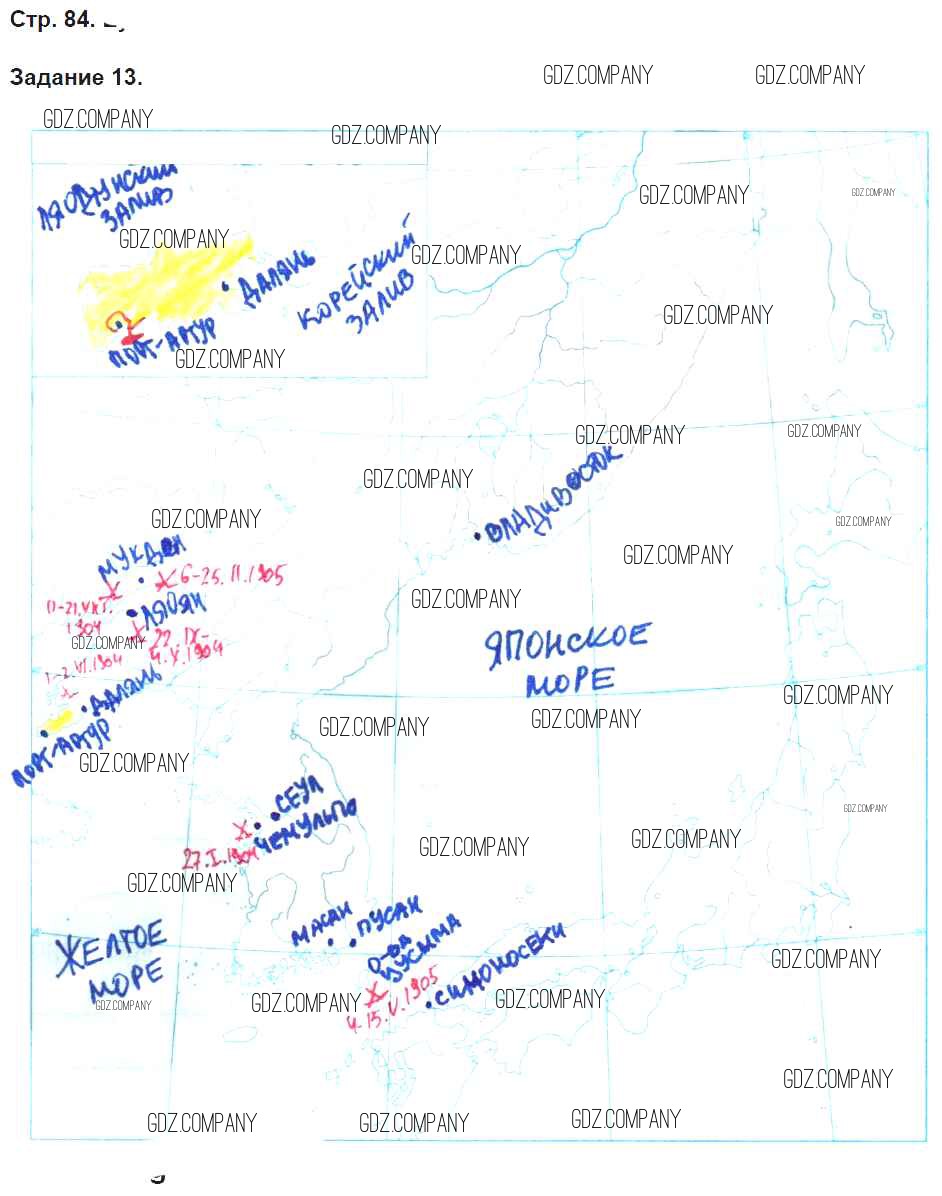 Стр. 84.
Задание 13.
GDZ.COMPANY
GDZ.COMPANY
GDZ.COMPANY
GDZ.COMPANY
ЛЯОДУНСКИЙ
ЗАЛИВ
GDZ.COMPANY
GDZ.COMPANY
GDZ.COMPANY
GDZ.COMPANY
ДАЛЯНЬ
КОРЕЙСКИЙ
ЗАЛИВ
GDZ.COMPANY
ПОРТ-АРТУР
GDZ.COMPANY
GDZ.COMPANY
GDZ.COMPANY
GDZ.COMPANY
ВЛАДИВОСТОК
GDZ.COMPANY
GDZ.COMPANY
МУКДЕН
6-25.II.1905
GDZ.COMPANY
GDZ.COMPANY
1904
ЛЯОЯН
22.IX-
4.X.1904
GDZ.COMPANY
ЯПОНСКОЕ
МОРЕ
1-2.VI.1904
ДАЛЯНЬ
ПОРТ-АРТУР
GDZ.COMPANY
GDZ.COMPANY
GDZ.COMPANY
GDZ.COMPANY
СЕУЛ
ЧЕМУЛЬПО
27.I.1904
GDZ.COMPANY
GDZ.COMPANY
GDZ.COMPANY
GDZ.COMPANY
МАСАН
ПУСАН
О-ВА
ЦУСИМА
СИМОНОСЕКИ
ЖЕЛТОЕ
МОРЕ
GDZ.COMPANY
GDZ.COMPANY
15.V.1905
GDZ.COMPANY
GDZ.COMPANY
GDZ.COMPANY
GDZ.COMPANY
GDZ.COMPANY
GDZ.COMPANY